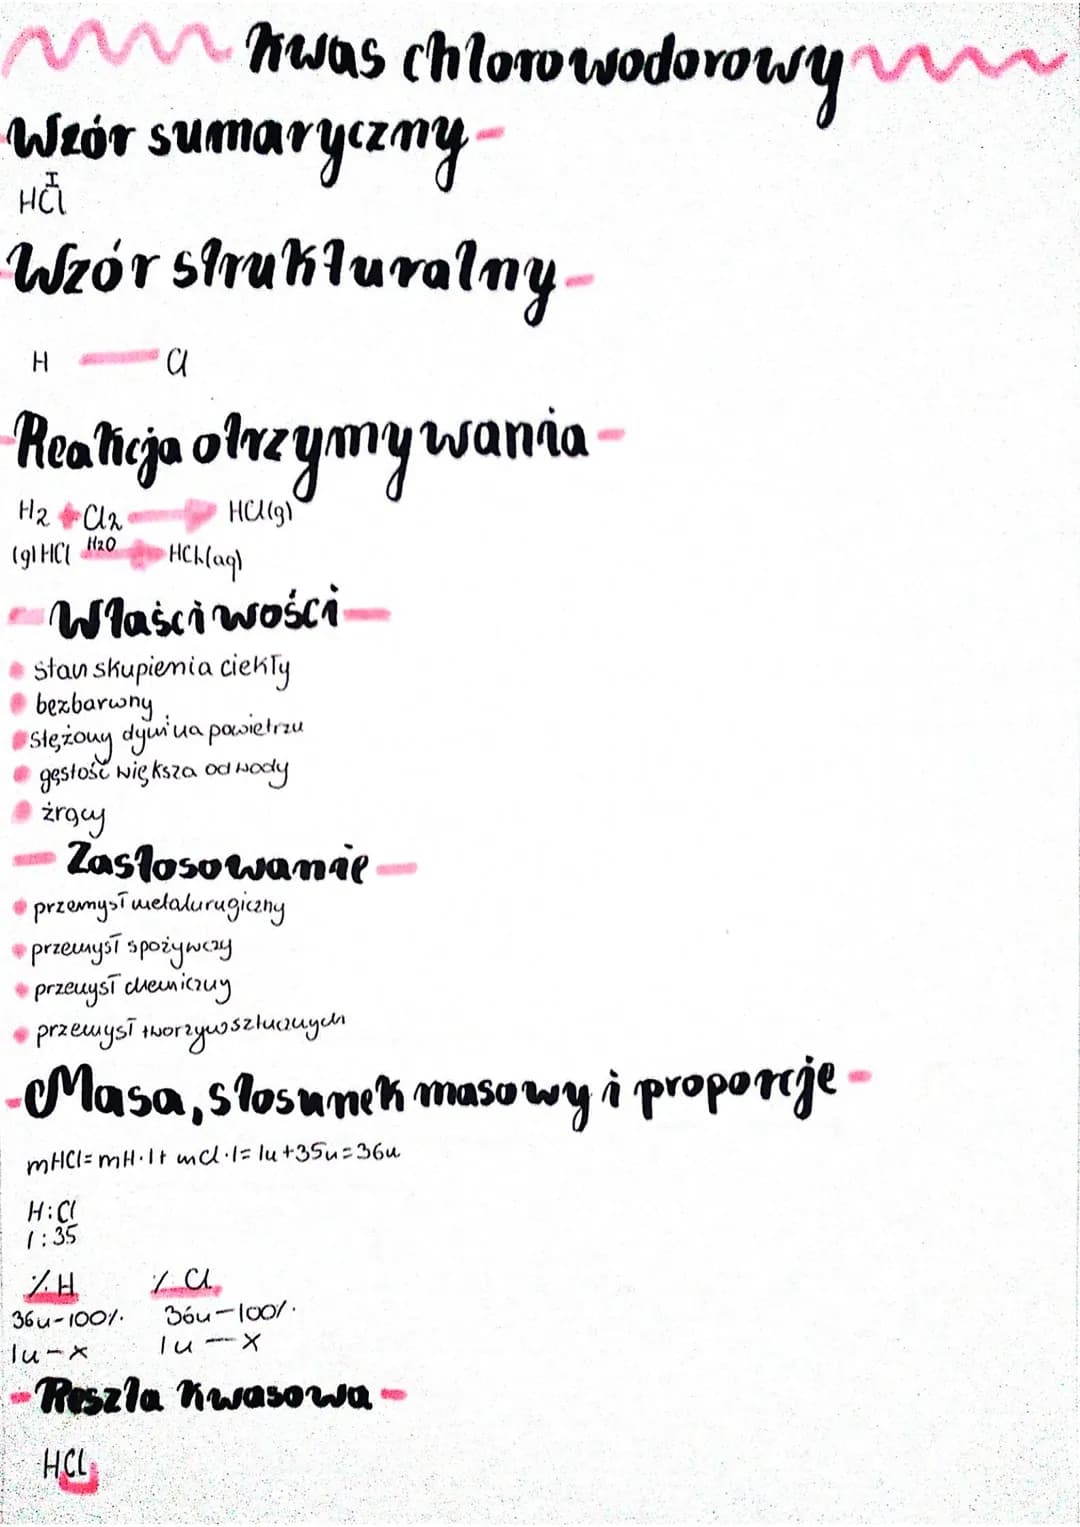 Kwas chlorowodorowy
Wzór sumaryczny
I
HCl
Wzór strukturalny
H — Cl
Reakcja otrzymywania
H2 + Cl2 → HCl(g)
(g) HCl H2O → HCl(aq)
Właściwości
stan skupienia ciekły
bezbarwny
stężony dymi na powietrzu
gęstość większa od wody
żrący
Zastosowanie
przemysł metalurugiczny
przemysł spożywczy
przemysł chemiczny
przemysł tworzyw sztucznych
Masa, stosunek masowy i proporcje
mHCl = mH·1+ mCl·1= 1u+35u=36u
H:Cl
1:35
% H % Cl
36u-100% 36u-100%
1u-x 1u-x
Reszta kwasowa
HCl